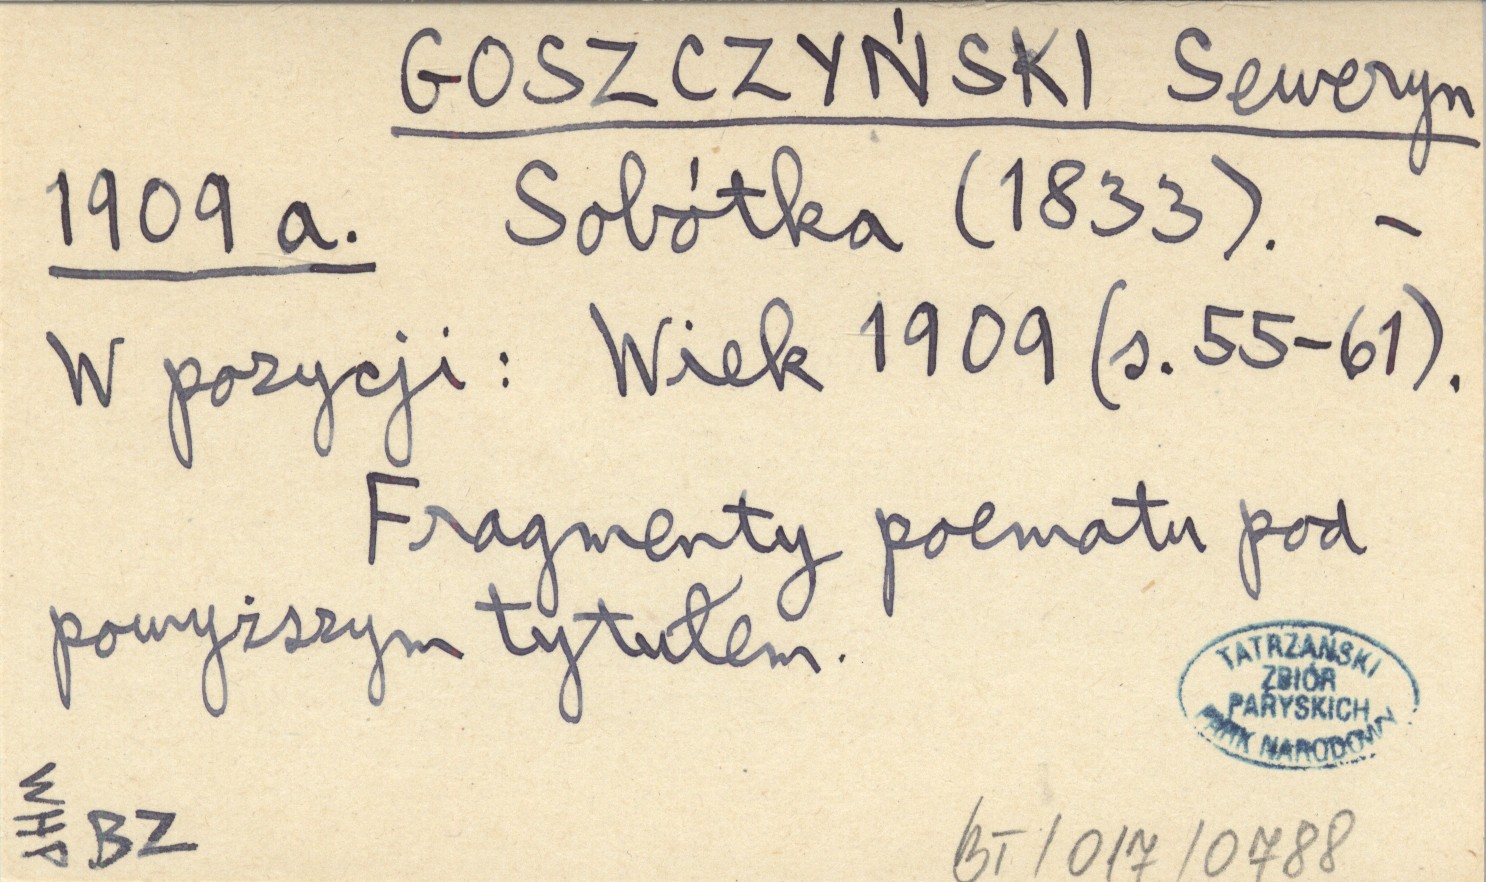 GOSZCZYŃSKI Seweryn
1909 a. Sobótka (1833). –
W pozycji: Wiek 1909 (s. 55–61).
Fragmenty poematu pod
powyższym tytułem.
TATRZAŃSKI
ZBIÓR
PARYSKICH
PARK NARODOWY
WHP
BZ
BT/017/0788